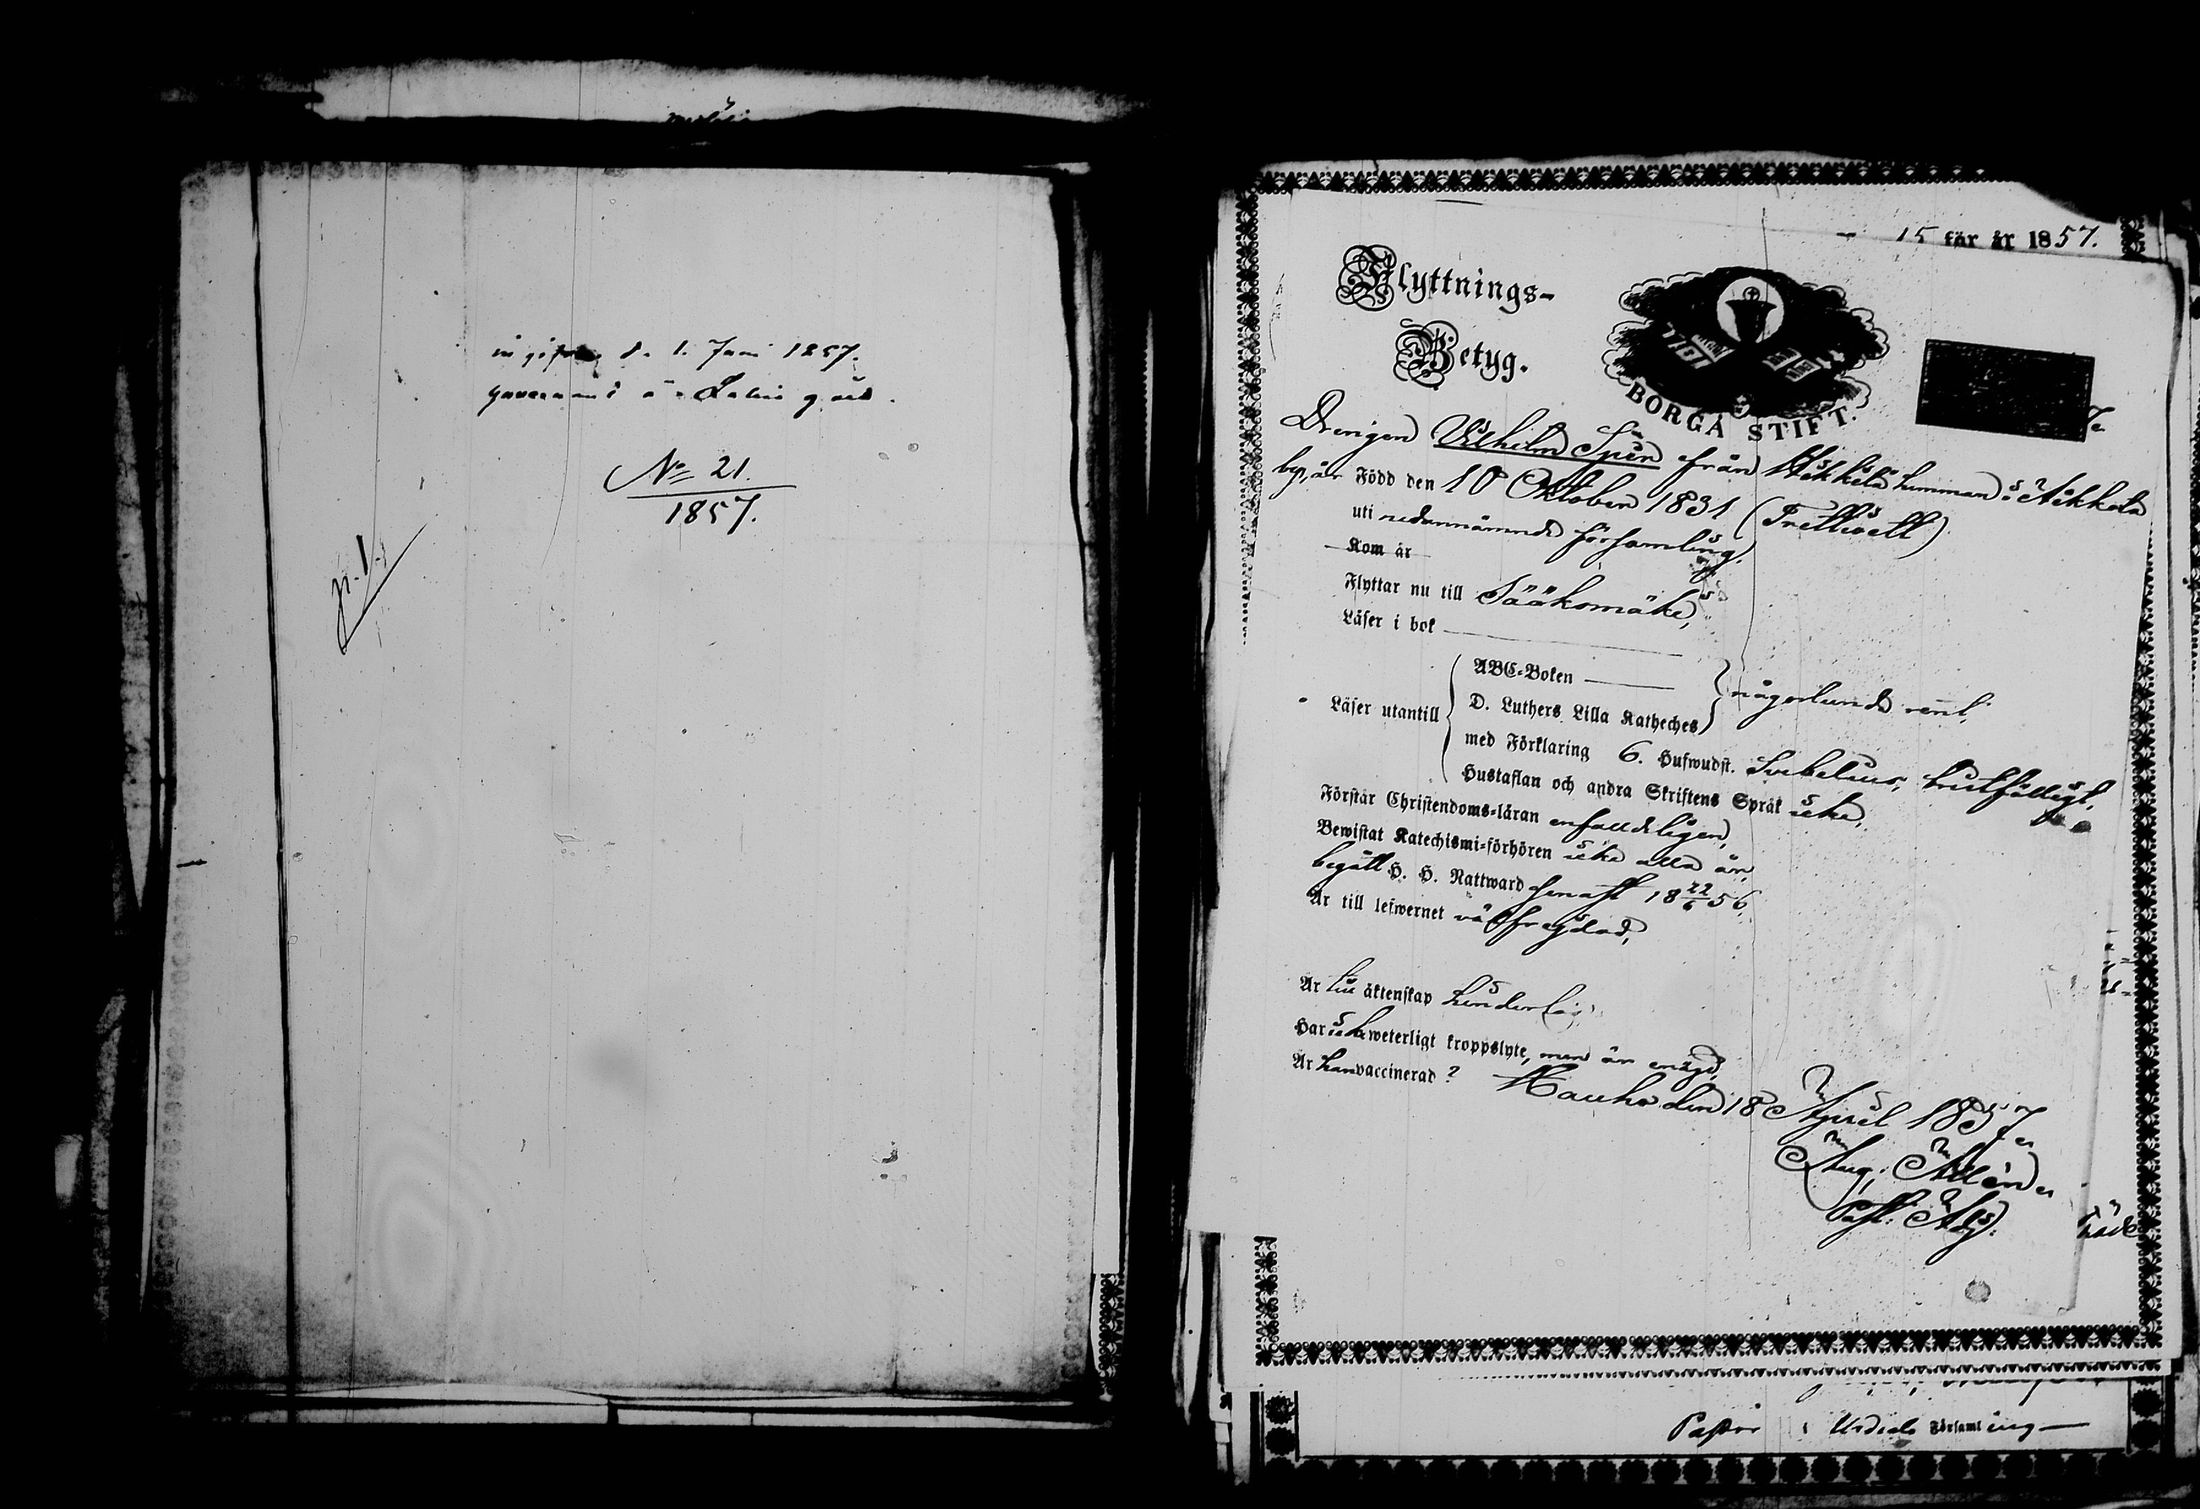 d. 1. Juni 1857.
No 21.
1857.
p. 1.
15 för år 1857.
Flyttnings-
Betyg.
BORGÅ STIFT.
Drengen Vilhelm från hemman i
by, är Född den 10 Oktober 1831 (Trettioett)
uti nedannämnde församling.
Kom är
Flyttar nu till Sääksmäki,
Läser i bok
ABC-Boken
någorlunda rent,
Läser utantill
D. Luthers Lilla Katheches
med Förklaring 6. Hufwudst. Svebelius, bristfälligt,
Hustaflan och andra Skriftens Språk icke,
Förstår Christendoms-läran enfaldeligen,
Bewistat Katechismi-förhören icke alla år,
begått H. H. Nattward senast 18 22/6 56,
Är till lefwernet välfrejdad,
Är till äktenskap hinderlös,
Har icke weterligt kroppslyte, men är
Är han vaccinerad?
Hauho den 18 April 1857
Aug: Allén
Past: Adj:
Pastor i Urdiala Församling